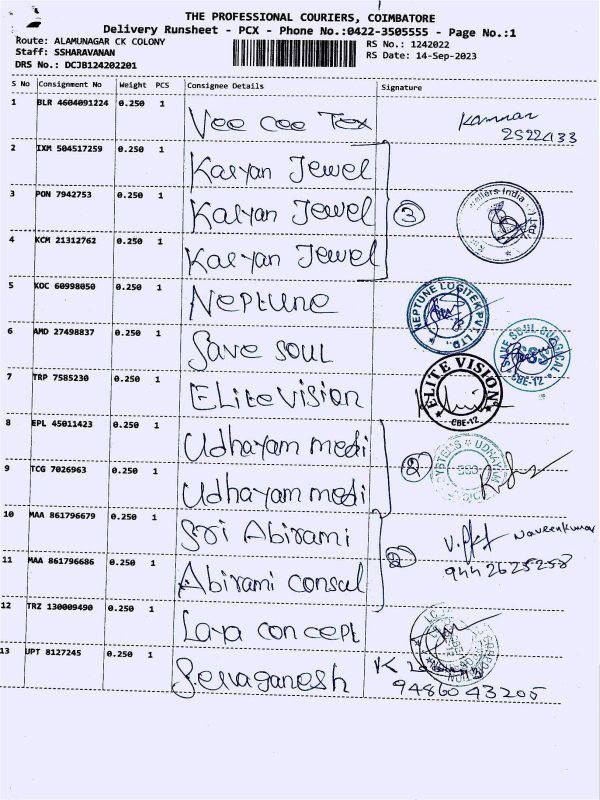 THE PROFESSIONAL COURIERS, COIMBATORE
Delivery Runsheet - PCX - Phone No.:0422-3505555 - Page No.:1
Route: ALAMUNAGAR CK COLONY RS No.: 1242022
Staff: SSHARAVANAN RS Date: 14-Sep-2023
DRS No.: DCJB124202201
S No Consignment No Weight PCS Consignee Details Signature
1 BLR 4604091224 0.250 1 Vee cee Tex Kannan
2522433
2 IXM 504517259 0.250 1 Kalyan Jewel
3 PON 7942753 0.250 1 Kalyan Jewel 3
4 KCM 21312762 0.250 1 Kalyan Jewel
5 KOC 60998050 0.250 1 Neptune NEPTUNE LOGITEK PVT. LTD
6 AMD 27498837 0.250 1 Save soul SAVE SOUL SURGICAL SSS CBE-12
7 TRP 7585230 0.250 1 Elite vision ELITE VISION CBE-12
8 EPL 45011423 0.250 1 Udhayam medi
9 TCG 7026963 0.250 1 Udhayam medi 2 UDHAYAM
10 MAA 861796679 0.250 1 Sri Abirami Naveenkumar
11 MAA 861796686 0.250 1 Abirami consul 2 9442625258
12 TRZ 130009490 0.250 1 Laya concept
13 UPT 8127245 0.250 1 Selvaganesh K
9486043205